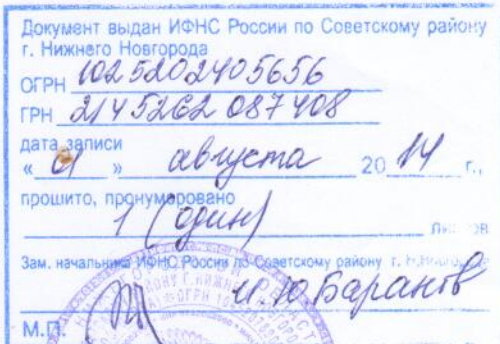 Документ выдан ИФНС России по Советскому району
г. Нижнего Новгорода
ОГРН 1025202405656
ГРН 2145262087408
дата записи
« 01 » августа 20 14 г.,
прошито, пронумеровано
1 (один) листов
Зам. начальника ИФНС России по Советскому району г. Н.Новгорода
И.Ю Баранов
М.П.